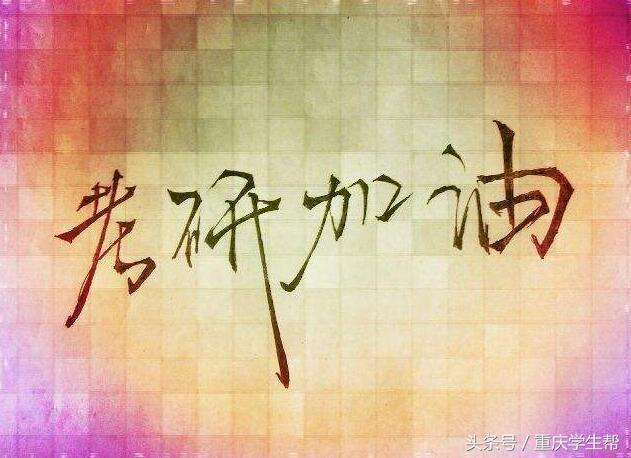 考研加油
头条号 / 重庆学生帮